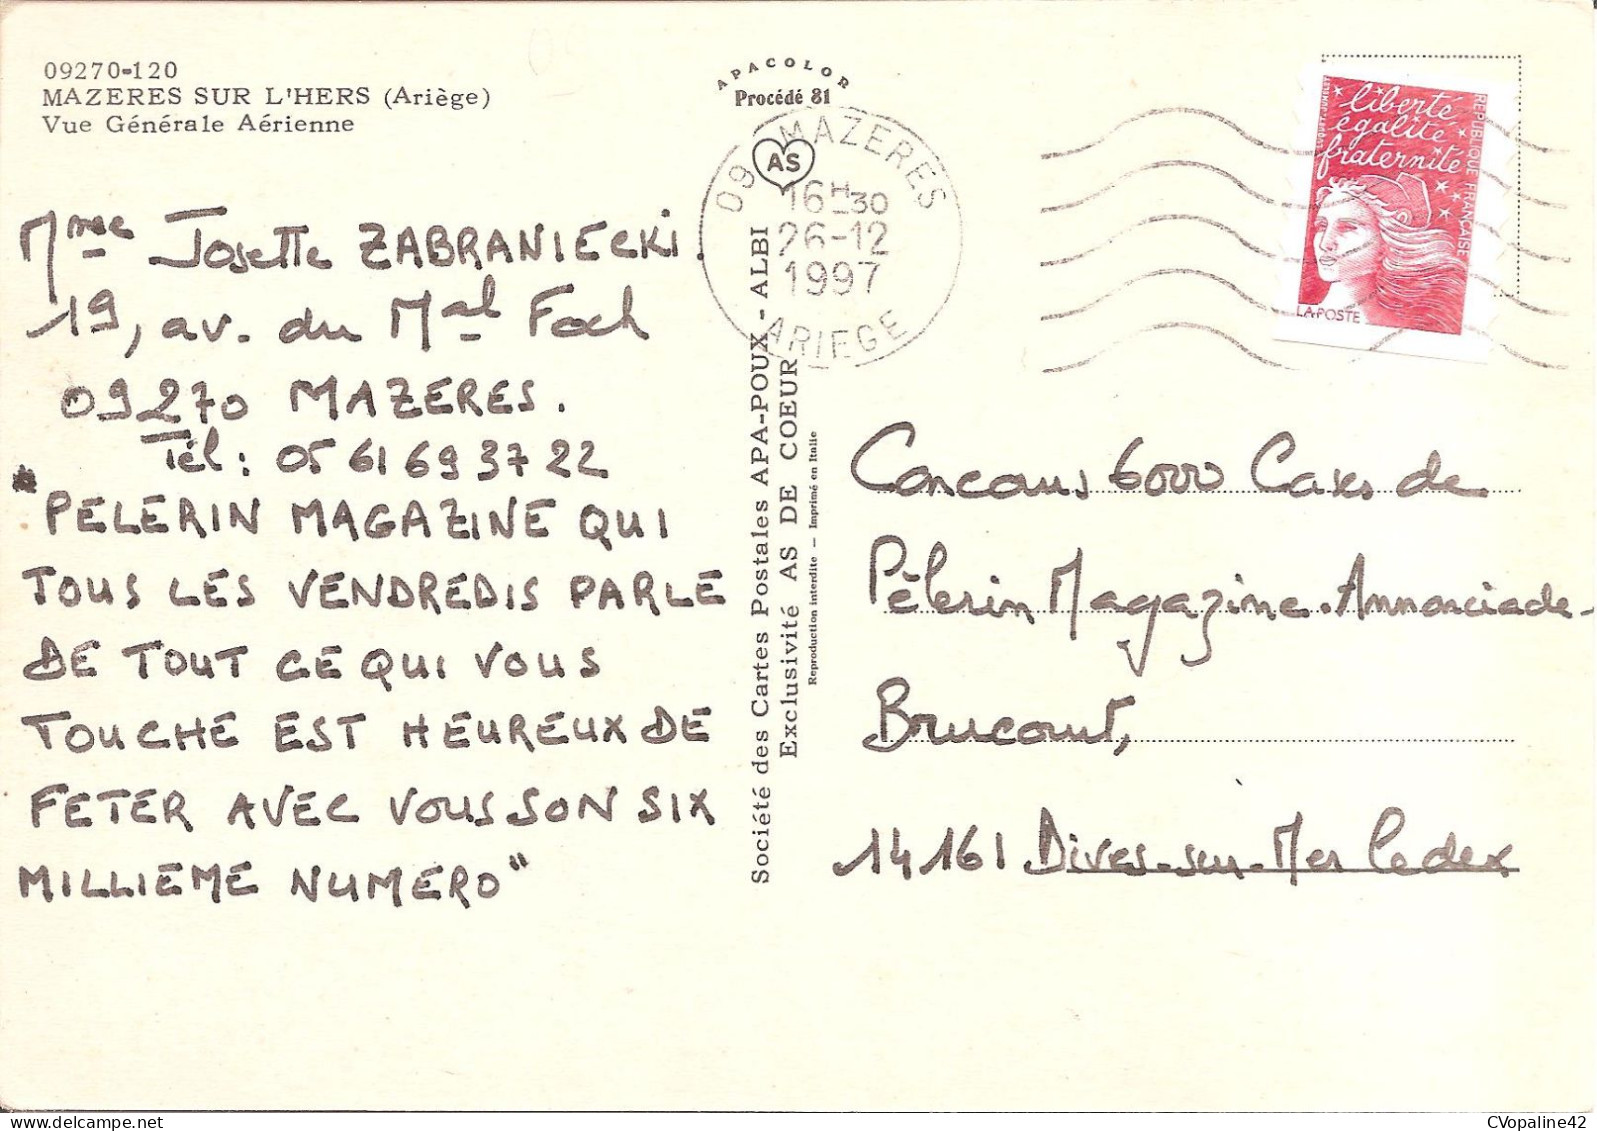 09270-120
MAZERES SUR L'HERS (Ariège)
Vue Générale Aérienne
APACOLOR
Procédé 81
AS
09 MAZERES
16H30
26-12
1997
ARIEGE
liberté
égalité
fraternité
REPUBLIQUE FRANÇAISE
LA POSTE
Mme Josette ZABRANIECKI.
19, av. du Mal Foch
09270 MAZERES.
Tél : 05 61 69 37 22
"PELERIN MAGAZINE QUI
TOUS LES VENDREDIS PARLE
DE TOUT CE QUI VOUS
TOUCHE EST HEUREUX DE
FETER AVEC VOUS SON SIX
MILLIEME NUMERO"
Société des Cartes Postales APA-POUX - ALBI
Exclusivité AS DE COEUR
Reproduction interdite - Imprimé en Italie
Concours 6000 Cases de
Pèlerin Magazine. Annonciade-
Brucourt,
14161 Dives-sur-Mer Cedex
CVopaline42